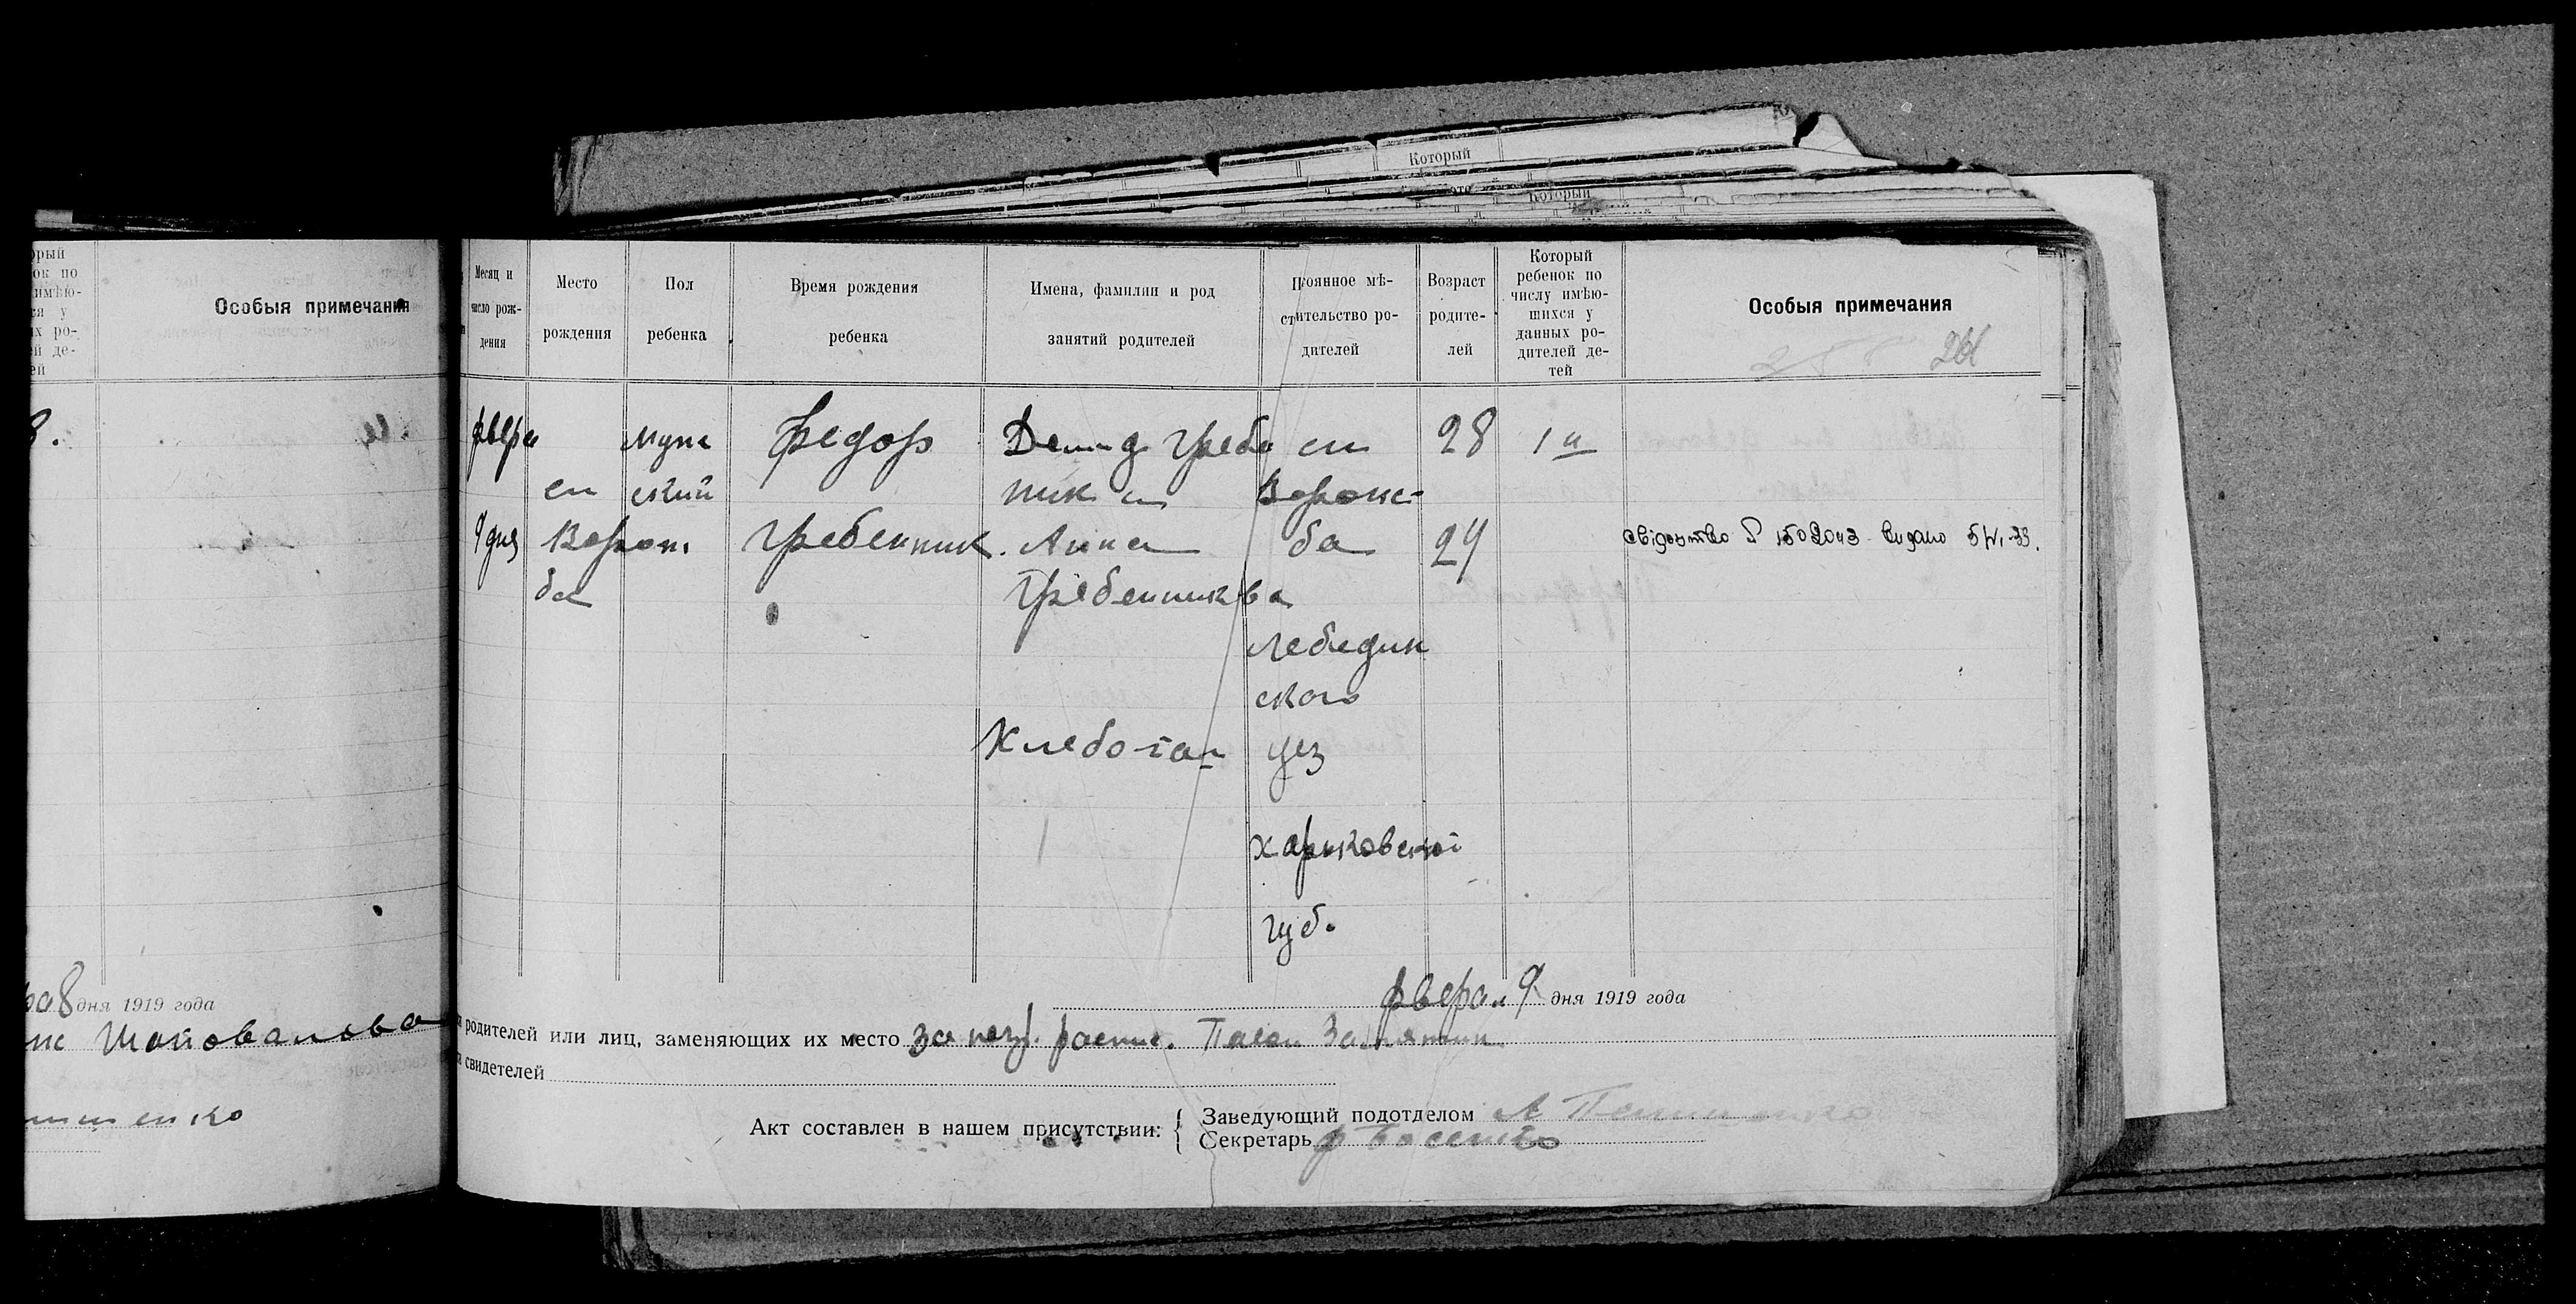 Который
Который
орый
ок по
имѣю-
ся у
их ро-
ей де-
ей
Особыя примечания
Месяц и
число рож-
дения
Место
рождения
Пол
ребенка
Время рождения
ребенка
Имена, фамилии и род
занятий родителей
Поянное мѣ-
стительство ро-
дителей
Возраст
родите-
лей
Который
ребенок по
числу имѣю-
шихся у
данных ро-
дителей де-
тей
Особыя примечания
261
8.
февра
9 дня
сл
Ворож
ба
муж
ский
Федор
Гребенник
Демид Гребе
ник
Анна
Гребенникова
Хлебопа
сл
Ворож-
ба
Лебедин
ского
уез
Харьковской
губ.
28
24
1й
свідоцтво 1502043 видано
8 дня 1919 года
Шаповалова
енко
феврал 9 дня 1919 года
родителей или лиц, заменяющих их место за негр. распис.
свидетелей
Акт составлен в нашем присутствии:
Заведующий подотделом А
Секретарь